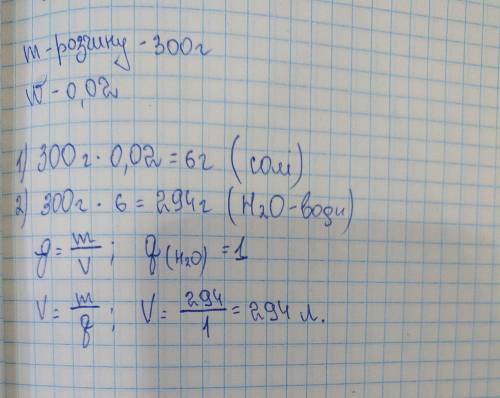 m-розчину - 300г
W - 0,02
1) 300г · 0,02 = 6г (солі)
2) 300г · 6 = 294г (H2O-води)
q = m/V ; q(H2O) = 1
V = m/q ; V = 294/1 = 294 л.